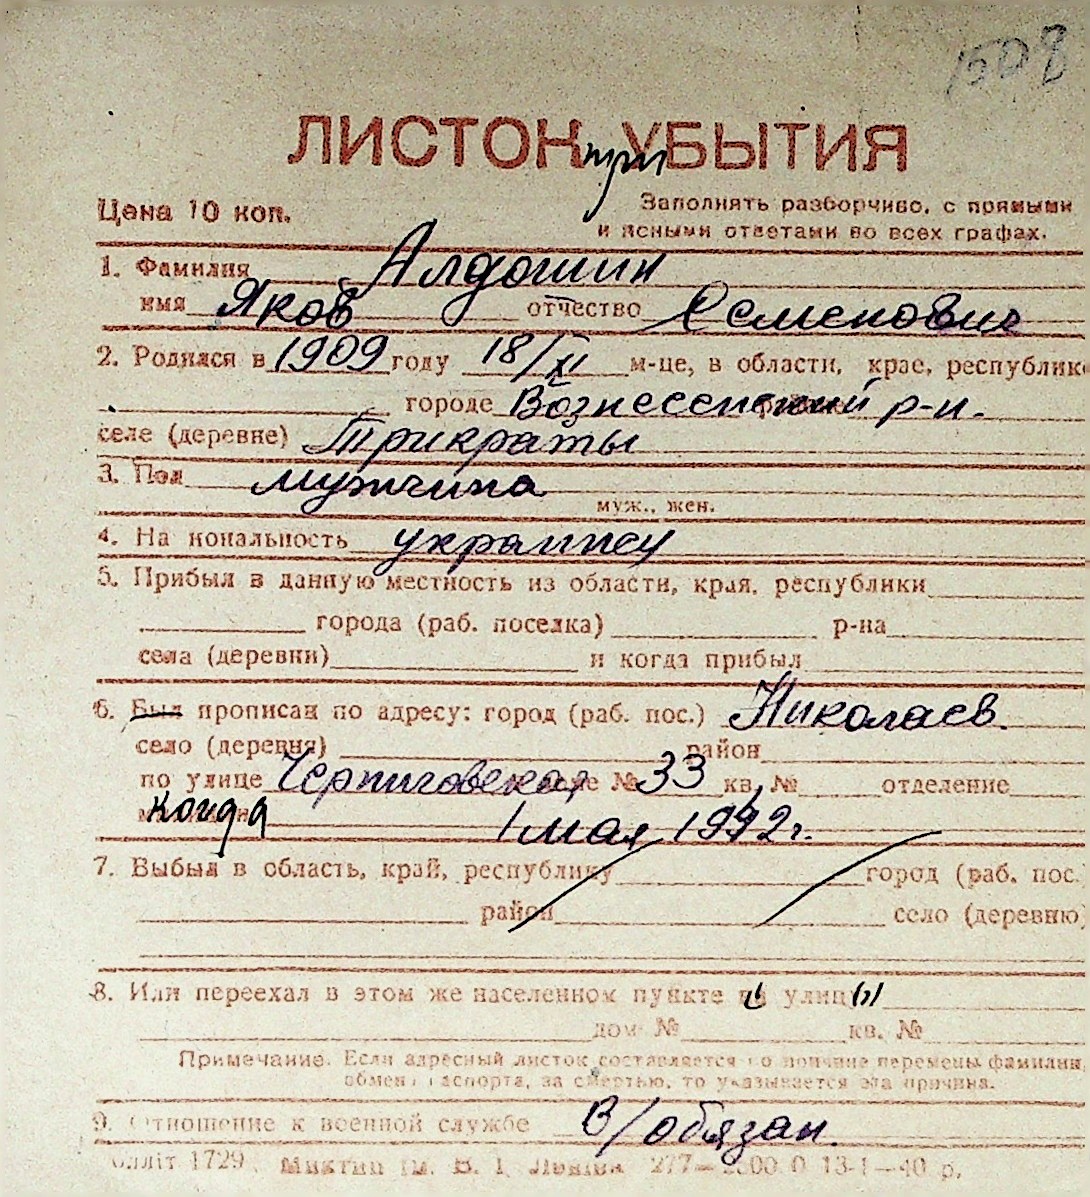 1508
ЛИСТОК при УБЫТИЯ
Цена 10 коп.
Заполнять разборчиво, с прямыми
и ясными ответами во всех графах.
1. Фамилия Алдошин
имя Яков отчество Семенович
2. Родился в 1909 году 18/XI м-це, в области, крае, республике
городе Вознесенский р-н.
селе (деревне) Трикраты
3. Пол мужчина
муж., жен.
4. Национальность украинец
5. Прибыл в данную местность из области, края, республики
города (раб. поселка) р-на
села (деревни) и когда прибыл
6. Был прописан по адресу: город (раб. пос.) Николаев
село (деревня) район
по улице Черниговская № 33 кв. № отделение
когда 1 мая 1942 г.
7. Выбыл в область, край, республику город (раб. пос.
район село (деревню)
8. Или переехал в этом же населенном пункте с улицы
дом № кв. №
Примечание. Если адресный листок составляется по причине перемены фамилии,
обмена паспорта, за смертью, то указывается эта причина.
9. Отношение к военной службе В/обязан.
1729. 13-1—40 р.